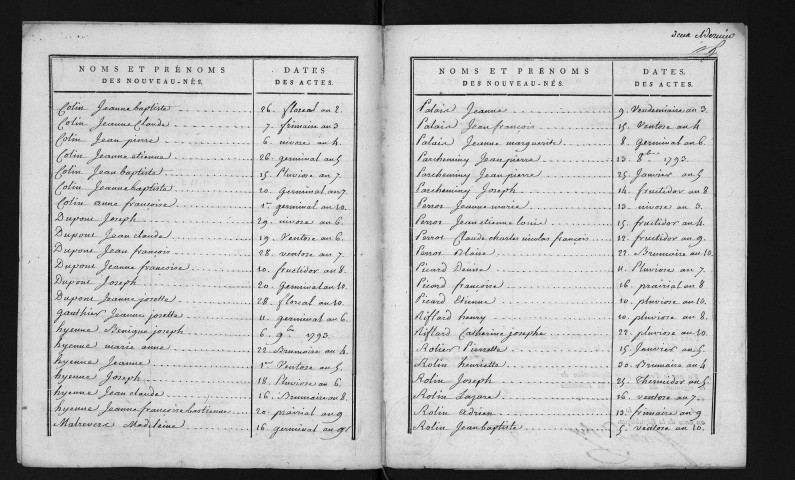 NOMS ET PRÉNOMS DES NOUVEAU-NÉS. DATES DES ACTES.
Colin Jeanne baptiste 26 floreal an 2.
Colin Jeanne Claude 7. frimaire an 3
Colin Jean pierre 6. nivose an 4.
Colin Jeanne etienne 26. germinal an 5
Colin Jean baptiste 15. Pluviose an 7.
Colin Jeanne baptiste 20 Germinal an 7
Colin anne francoise 1er germinal an 10.
Dupont Joseph 29. nivose an 6.
Dupont Jean claude 19. Ventose an 6.
Dupont Jean francois 28. ventose an 7.
Dupont Jeanne francoise 10. fructidor an 8.
Dupont Joseph 20. Germinal an 10.
Dupont Jeanne josette 28. floreal an 10.
Gauthier Jeanne josette 11. germinal an 6.
hyenne Benigne joseph 6. 9bre 1793.
hyenne marie anne 22. Brumaire an 4.
hyenne Jeanne 1er Ventose an 5.
hyenne Joseph 18. Pluviose an 6.
hyenne Jean claude 16. Brumaire an 8.
hyenne Jeanne francoise bastienne 20 prairial an 9
Matrevere Madeleine 16 germinal an 9
NOMS ET PRÉNOMS DES NOUVEAU-NÉS. DATES. DES ACTES.
Palais Jeanne 9. Vendemiaire an 3.
Palais Jean francois 15. Ventose an 4.
Palais Jeanne marguerite 8. Germinal an 6.
Parcheminey Jean pierre 13. 8bre 1793.
Parcheminey Jean pierre 25. Janvier an 5
Parcheminey Joseph 14. fructidor an 8
Perros Jeanne marie 13. nivose an 3.
Perros Jean etienne louis 15. fructidor an 4.
Perros Claude charles nicolas francois 12. fructidor an 9.
Perros Blaise 22. Brumaire an 10
Picard Denise 11. Pluviose an 7.
Picard francoise 16. prairial an 8
Picard Etienne 10. pluviose an 5.
Riflard henry 10. pluviose an 8.
Riflard Catherine josephe 22. pluviose an 10.
Rolier Pierrette 15. Janvier an 5.
Rolin henriette 30. Brumaire an 4
Rolin Joseph 25. Thermidor an 5.
Rolin Lazare 16. ventose an 7.
Rolin Adrien 13. frimaire an 9
Rolin Jean baptiste 5. ventose an 10.